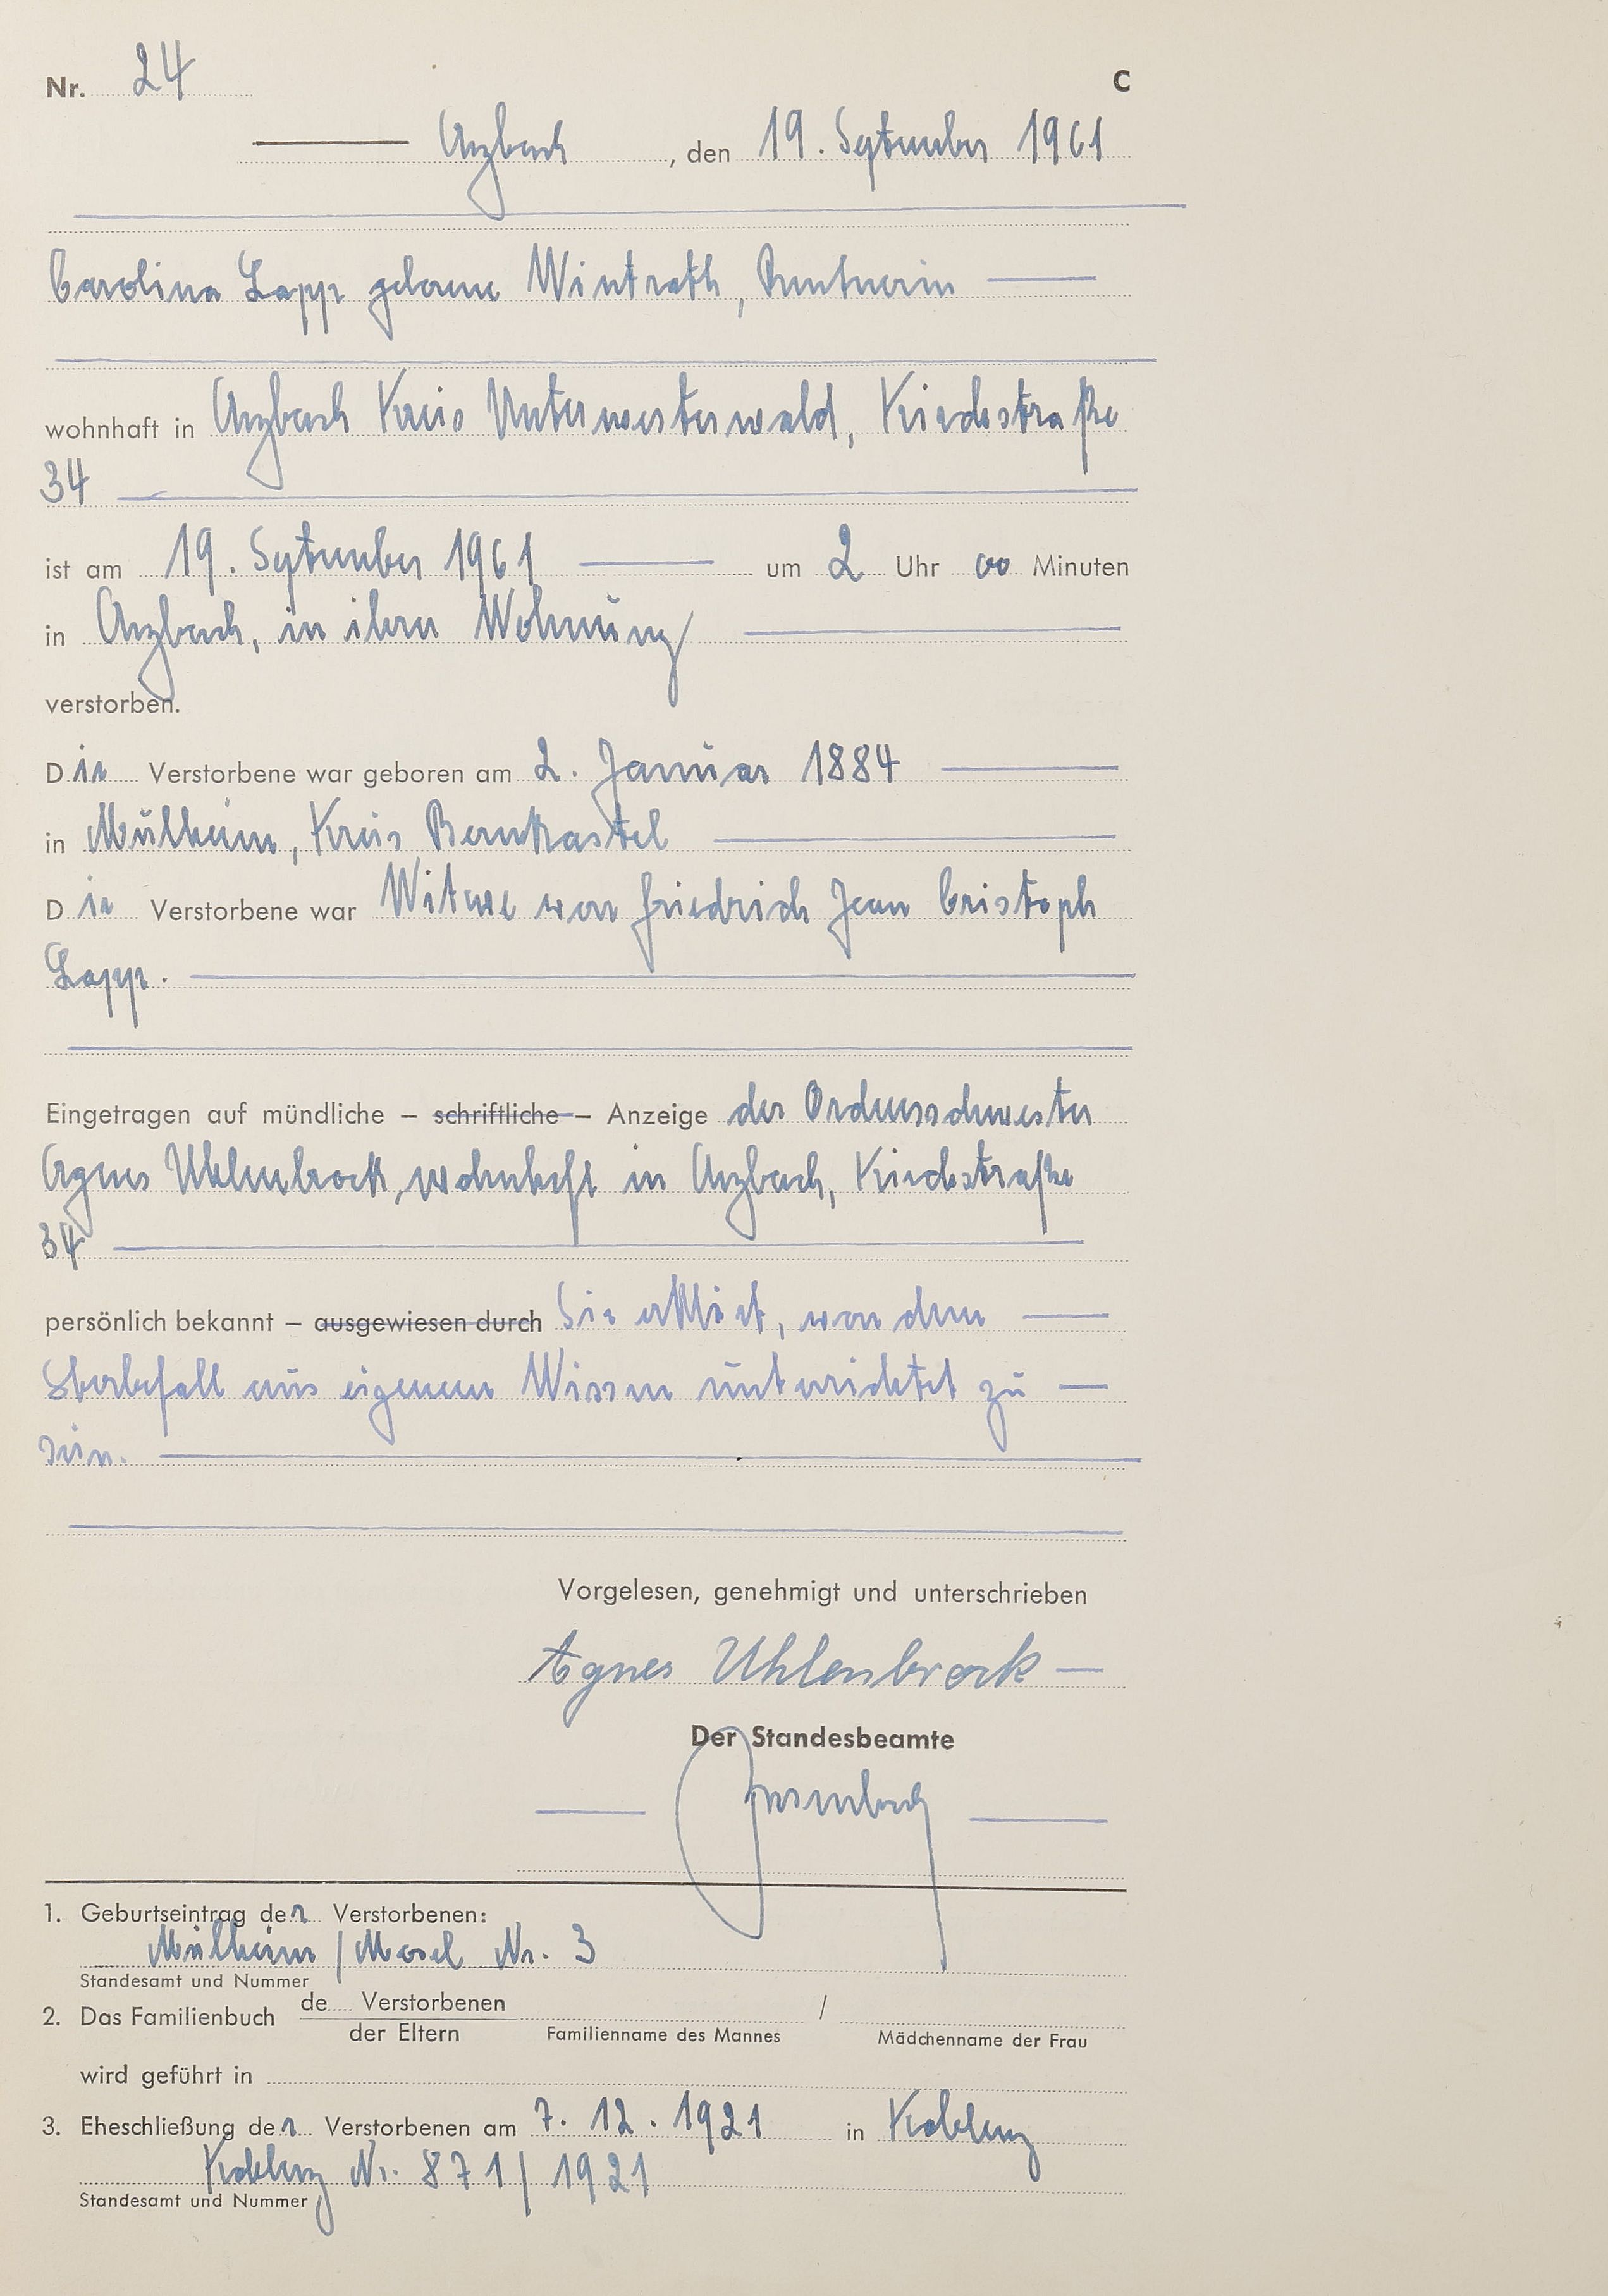 Nr. 24
C
Arzbach, den 19. September 1961
Carolina Lapp geborene Wintrath, Rentnerin
wohnhaft in Arzbach Kreis Unterwesterwald, Kirchstraße
34
ist am 19. September 1961 um 2 Uhr 00 Minuten
in Arzbach, in ihrer Wohnung
verstorben.
Die Verstorbene war geboren am 2. Januar 1884
in Mülheim, Kreis Bernkastel
Die Verstorbene war Witwe von Friedrich Jean Cristoph
Lapp.
Eingetragen auf mündliche – schriftliche – Anzeige der Ordensschwester
Agnes Uhlenbrock, wohnhaft in Arzbach, Kirchstraße
34
persönlich bekannt – ausgewiesen durch Sie erklärt, von dem
Sterbefall aus eigenem Wissen unterrichtet zu
sein.
Vorgelesen, genehmigt und unterschrieben
Agnes Uhlenbrock
Der Standesbeamte
1. Geburtseintrag der Verstorbenen:
Mülheim / Mosel Nr. 3
Standesamt und Nummer
2. Das Familienbuch de Verstorbenen /
der Eltern Familienname des Mannes Mädchenname der Frau
wird geführt in
3. Eheschließung der Verstorbenen am 7. 12. 1921 in Koblenz
Koblenz Nr. 871/1921
Standesamt und Nummer